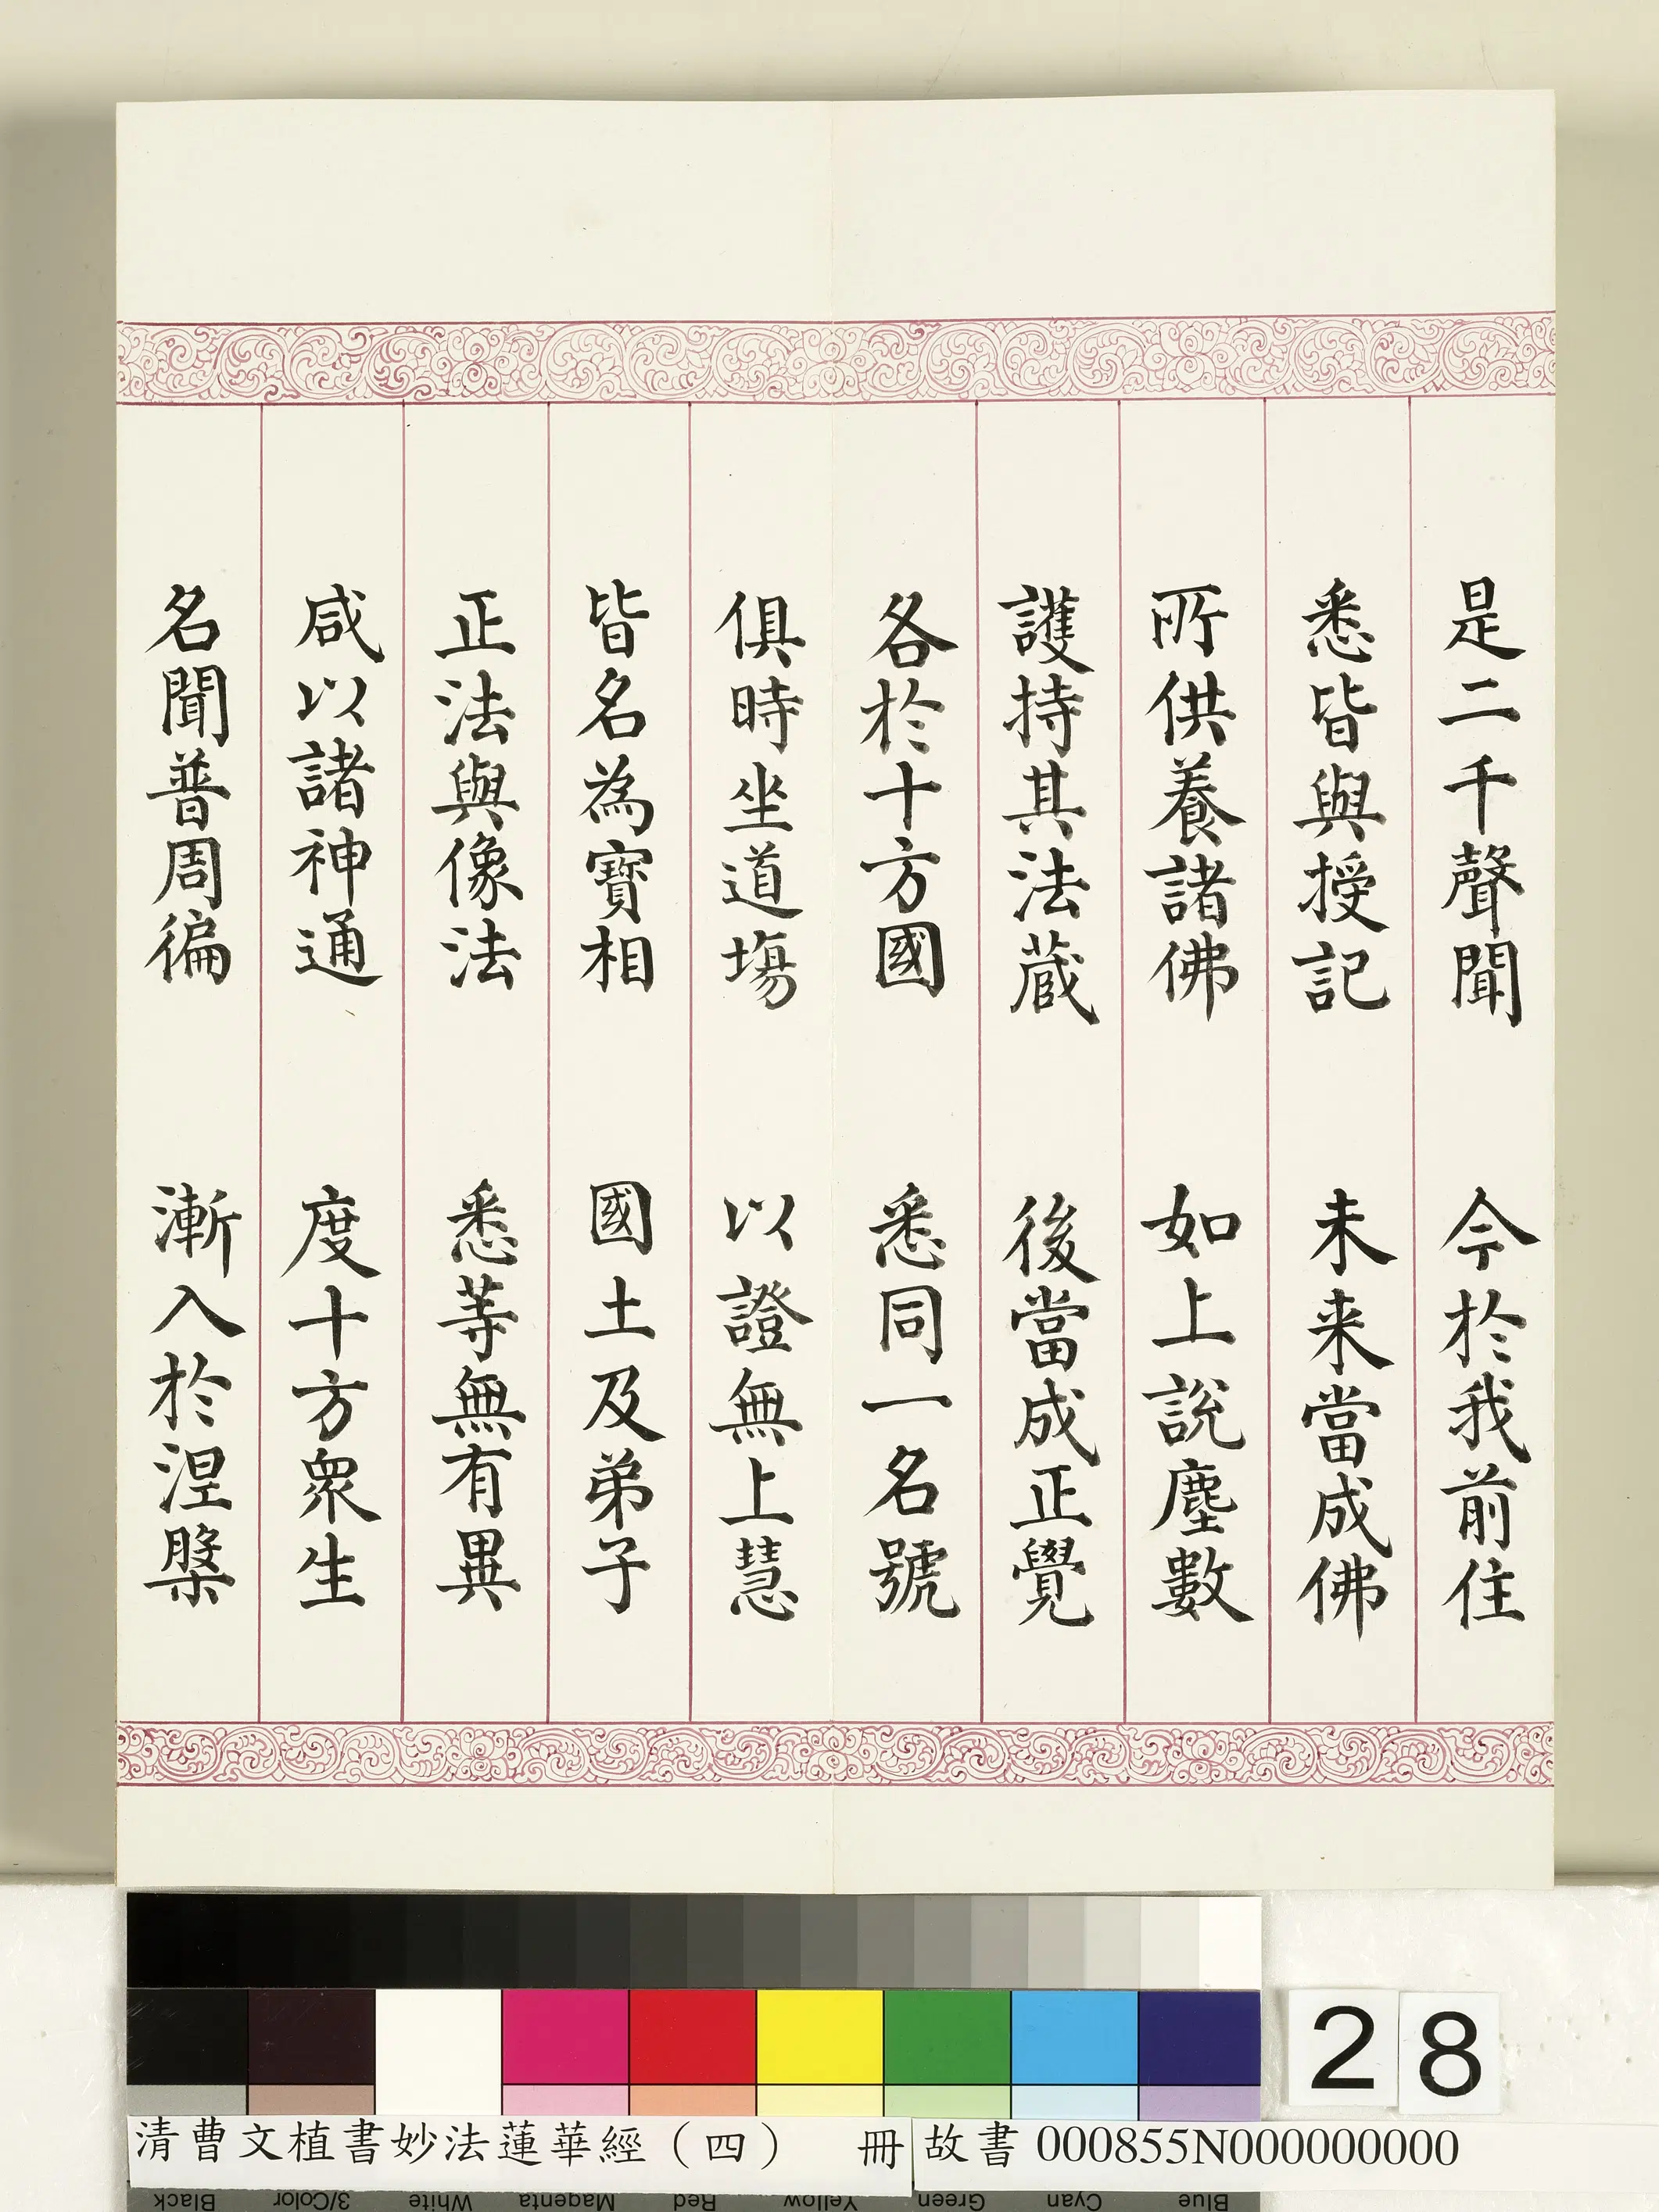 是二千聲聞　今於我前住
悉皆與授記　未来當成佛
所供養諸佛　如上說塵數
護持其法蔵　後當成正覺
各於十方國　悉同一名號
俱時坐道塲　以證無上慧
皆名為寳相　國土及弟子
正法與像法　悉等無有異
咸以諸神通　度十方眾生
名聞普周徧　漸入於涅槃
28
清曹文植書妙法蓮華經（四）　冊
故書 000855N000000000
Black 3/Color White Magenta Red Yellow Green Cyan Blue